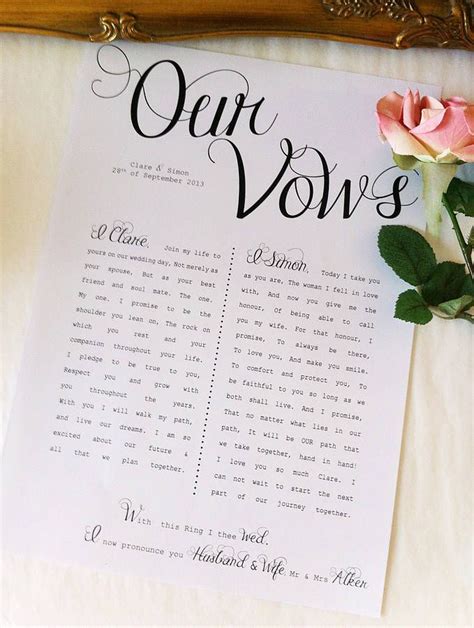 Our
Vows
Clare & Simon
28th of September 2013
I Clare, Join my life to
yours on our wedding day, Not merely as
your spouse, But as your best
friend and soul mate. The one.
My one. I promise to be the
shoulder you lean on, The rock on
which you rest and your
companion throughout your life.
I pledge to be true to you,
Respect you and grow with
you throughout the years.
With you I will walk my path,
and live our dreams. I am so
excited about our future &
all that we plan together.
I Simon, Today I take you
as you are, The woman I fell in love
with, And now you give me the
honour, of being able to call
you my wife. For that honour, I
promise, To always be there,
To love you, And make you smile,
To comfort and protect you, To
be faithful to you so long as we
both shall live. And I promise,
That no matter what lies in our
path, It will be OUR path that
we take together, hand in hand!
I love you so much Clare. I
can not wait to start the next
part of our journey together.
With this Ring I thee Wed,
I now pronounce you Husband & Wife, Mr & Mrs Aitken